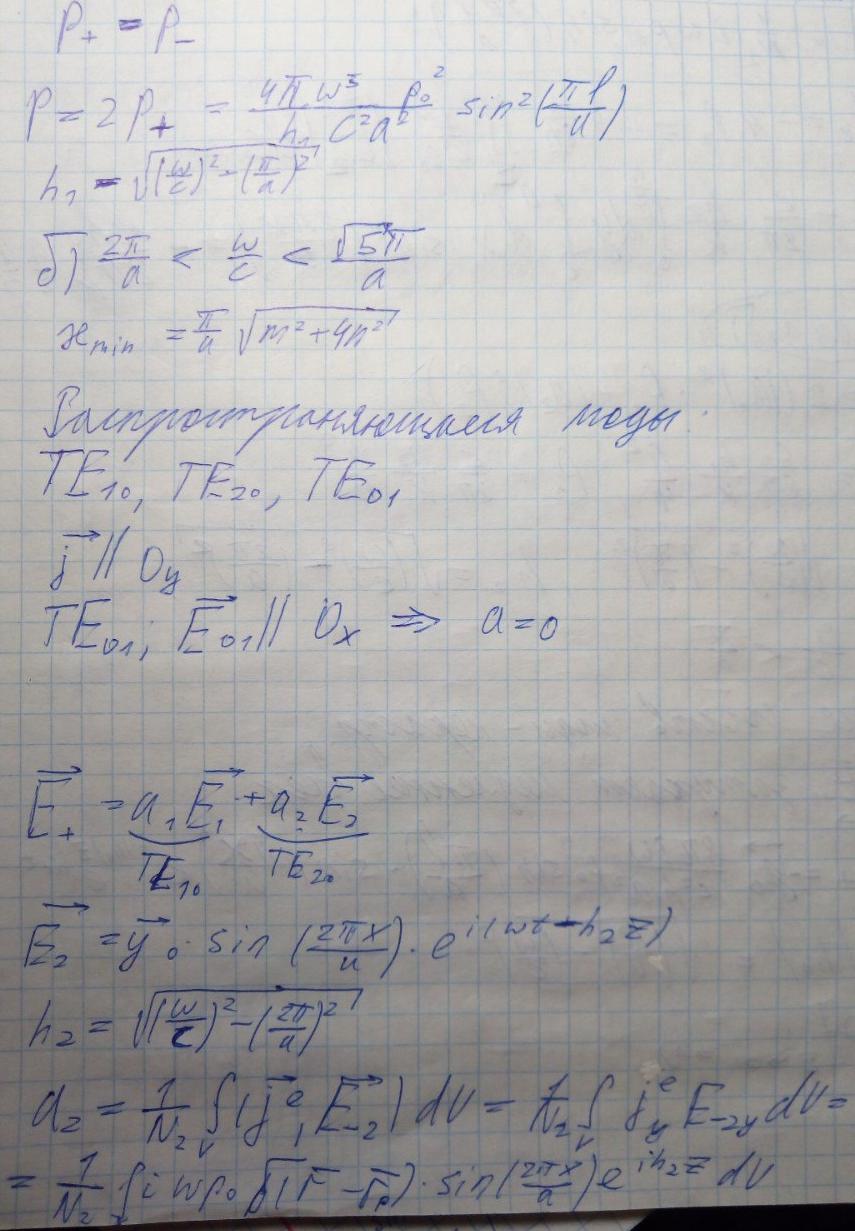 P₊ = P₋
P = 2P₊ = \frac{4πω³ p₀²}{h₁ c²a²} sin²(\frac{πl}{a})
h₁ = √((\frac{ω}{c})² - (\frac{π}{a})²)
б) \frac{2π}{a} < \frac{ω}{c} < \frac{√5π}{a}
ϰ_{min} = \frac{π}{a} √(m² + 4n²)
Распространяющиеся моды:
TE₁₀, TE₂₀, TE₀₁
\vec{j} // Oy
TE₀₁; \vec{E}₀₁ // Ox ⇒ a = 0
\vec{E}₊ = a₁\vec{E}₁ + a₂\vec{E}₂
TE₁₀ TE₂₀
\vec{E}₂ = \vec{y}₀ · sin(\frac{2πx}{a}) · e^{i(ωt - h₂z)}
h₂ = √((\frac{ω}{c})² - (\frac{2π}{a})²)
a₂ = \frac{1}{N₂} ∫_v (\vec{j}^e, \vec{E}_{-2}) dV = \frac{1}{N₂} ∫_v j_y^e E_{-2y} dV =
= \frac{1}{N₂} ∫_v iωp₀ δ(\vec{r} - \vec{r}_p) · sin(\frac{2πx}{a}) e^{ih₂z} dV